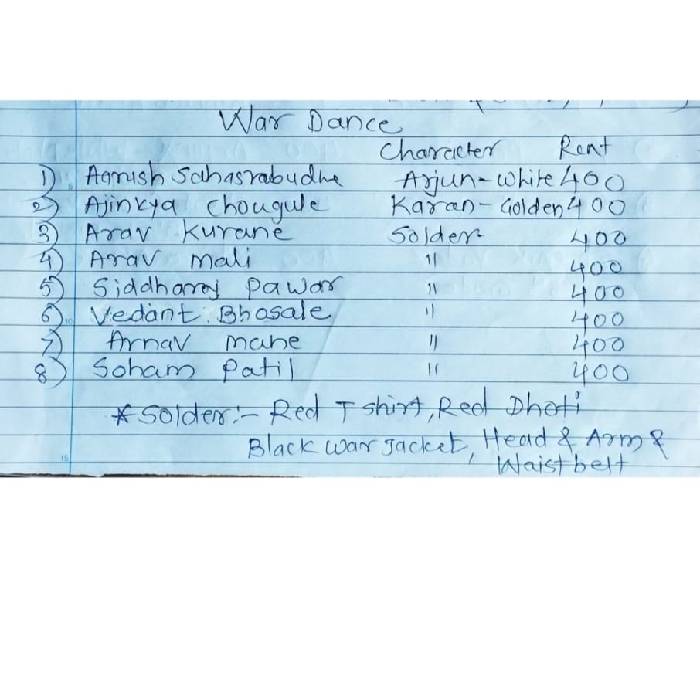 War Dance
Character Rent
1) Aarush Sahasrabudhe Arjun-White 400
2) Ajinkya Chougule Karan-Golden 400
3) Arav Kurane Solder 400
4) Arav Mali " 400
5) Siddharaj Pawar " 400
6) Vedant. Bhosale " 400
7) Arnav Mane " 400
8) Soham Patil " 400
* Solder:- Red T shirt, Red Dhoti
Black War Jacket, Head & Arm &
Waist belt